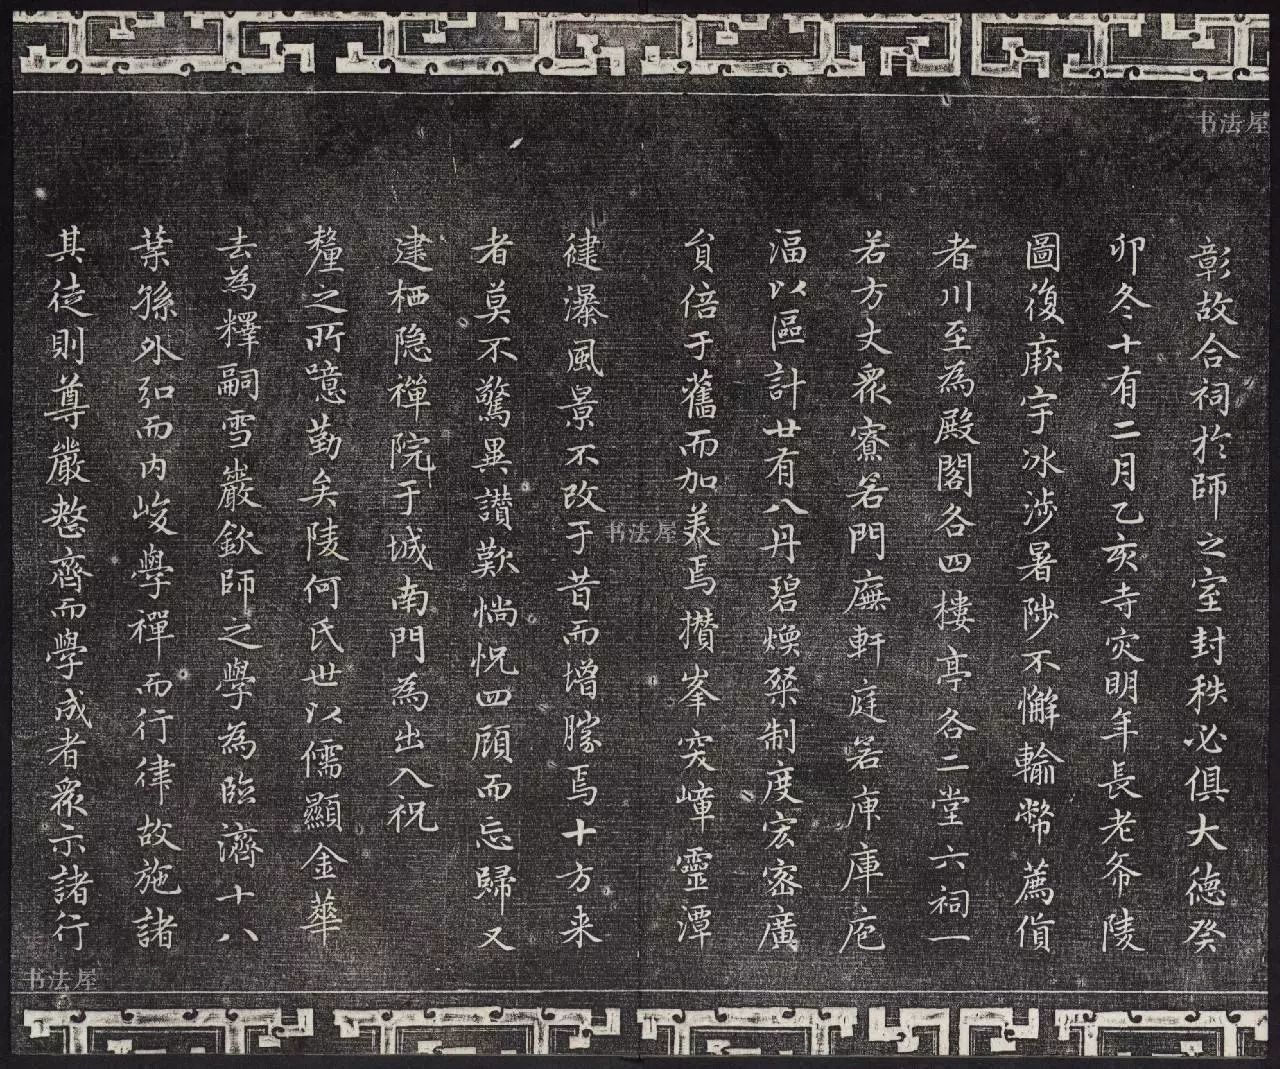 彰故合祠於師之室封秩必俱大德癸
卯冬十有二月乙亥寺灾明年長老希陵
圖復厥宇冰涉暑陟不懈輸幣薦貨
者川至為殿閣各四樓亭各二堂六祠一
若方丈眾寮若門廡軒庭若庾庫庖
湢以區計廿有八丹碧煥粲制度宏密廣
員倍于舊而加美焉攢峯突嶂靈潭
建瀑風景不改于昔而增勝焉十方来
者莫不驚異讃歎惝怳四顧而忘歸又
建栖隐禪院于城南門為出入祝
釐之所噫勤矣陵何氏世以儒顯金華
去為釋嗣雪巖欽師之學為臨濟十八
葉孫外弘而内峻學禪而行律故施諸
其徒則尊嚴整齊而學成者眾示諸行
书法屋
书法屋
书法屋